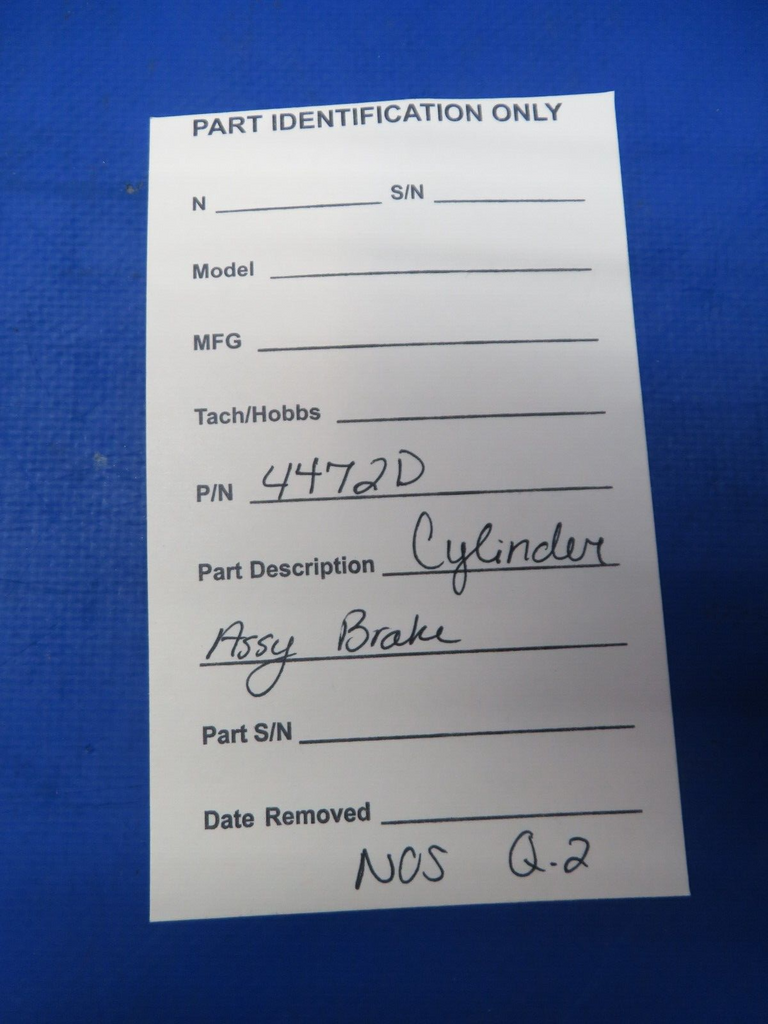 PART IDENTIFICATION ONLY
N S/N
Model
MFG
Tach/Hobbs
P/N 4472D
Part Description Cylinder
Assy Brake
Part S/N
Date Removed
NOS Q.2